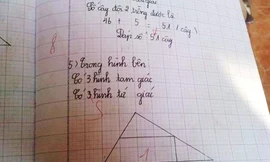 Số cây đội 2 trồng được là
46 + 5 = 51 (cây)
Đáp số 51 cây
5) Trong hình bên
Có 3 hình tam giác
Có 3 hình tứ giác
1